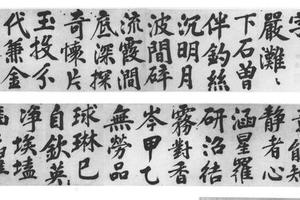 嚴灘〻
下石曾
伴釣絲
沉明月
波間碎
流霞澗
底深探
奇懷片
玉投分
代兼金
能知
靜者心
涵星羅
研沼結
霧對香
岑甲乙
無勞品
球琳已
自欽英
淨埃壒